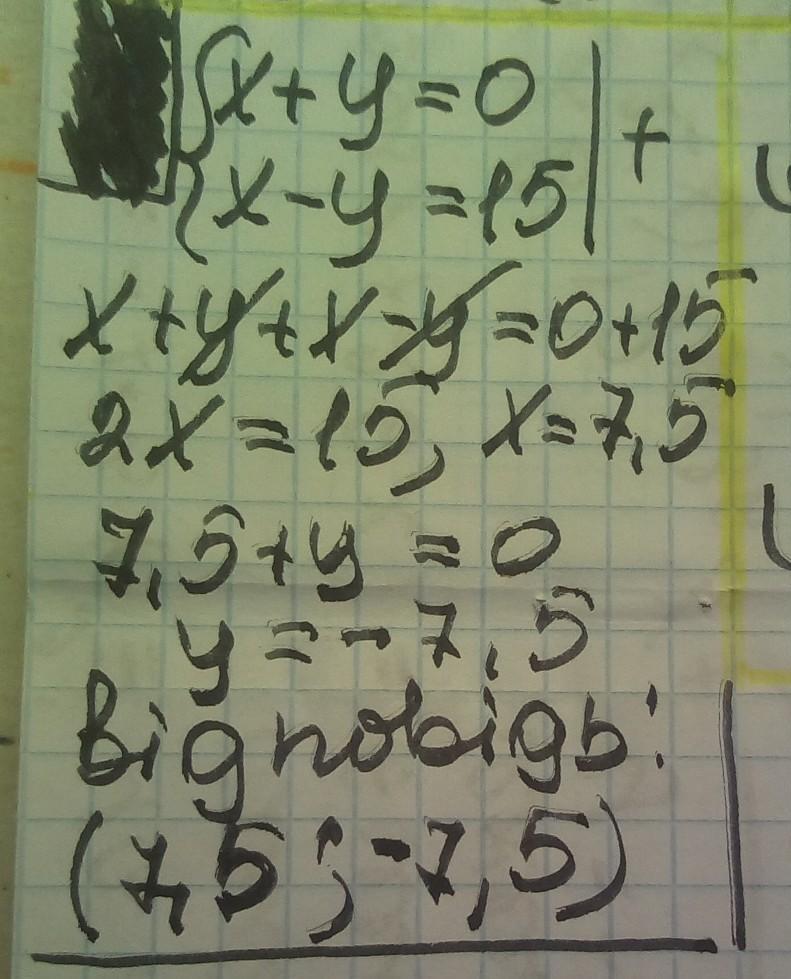 {x+y=0 | +
{x-y=15 |
x+y+x-y=0+15
2x=15, x=7,5
7,5+y=0
y=-7,5
Відповідь:
(7,5;-7,5)